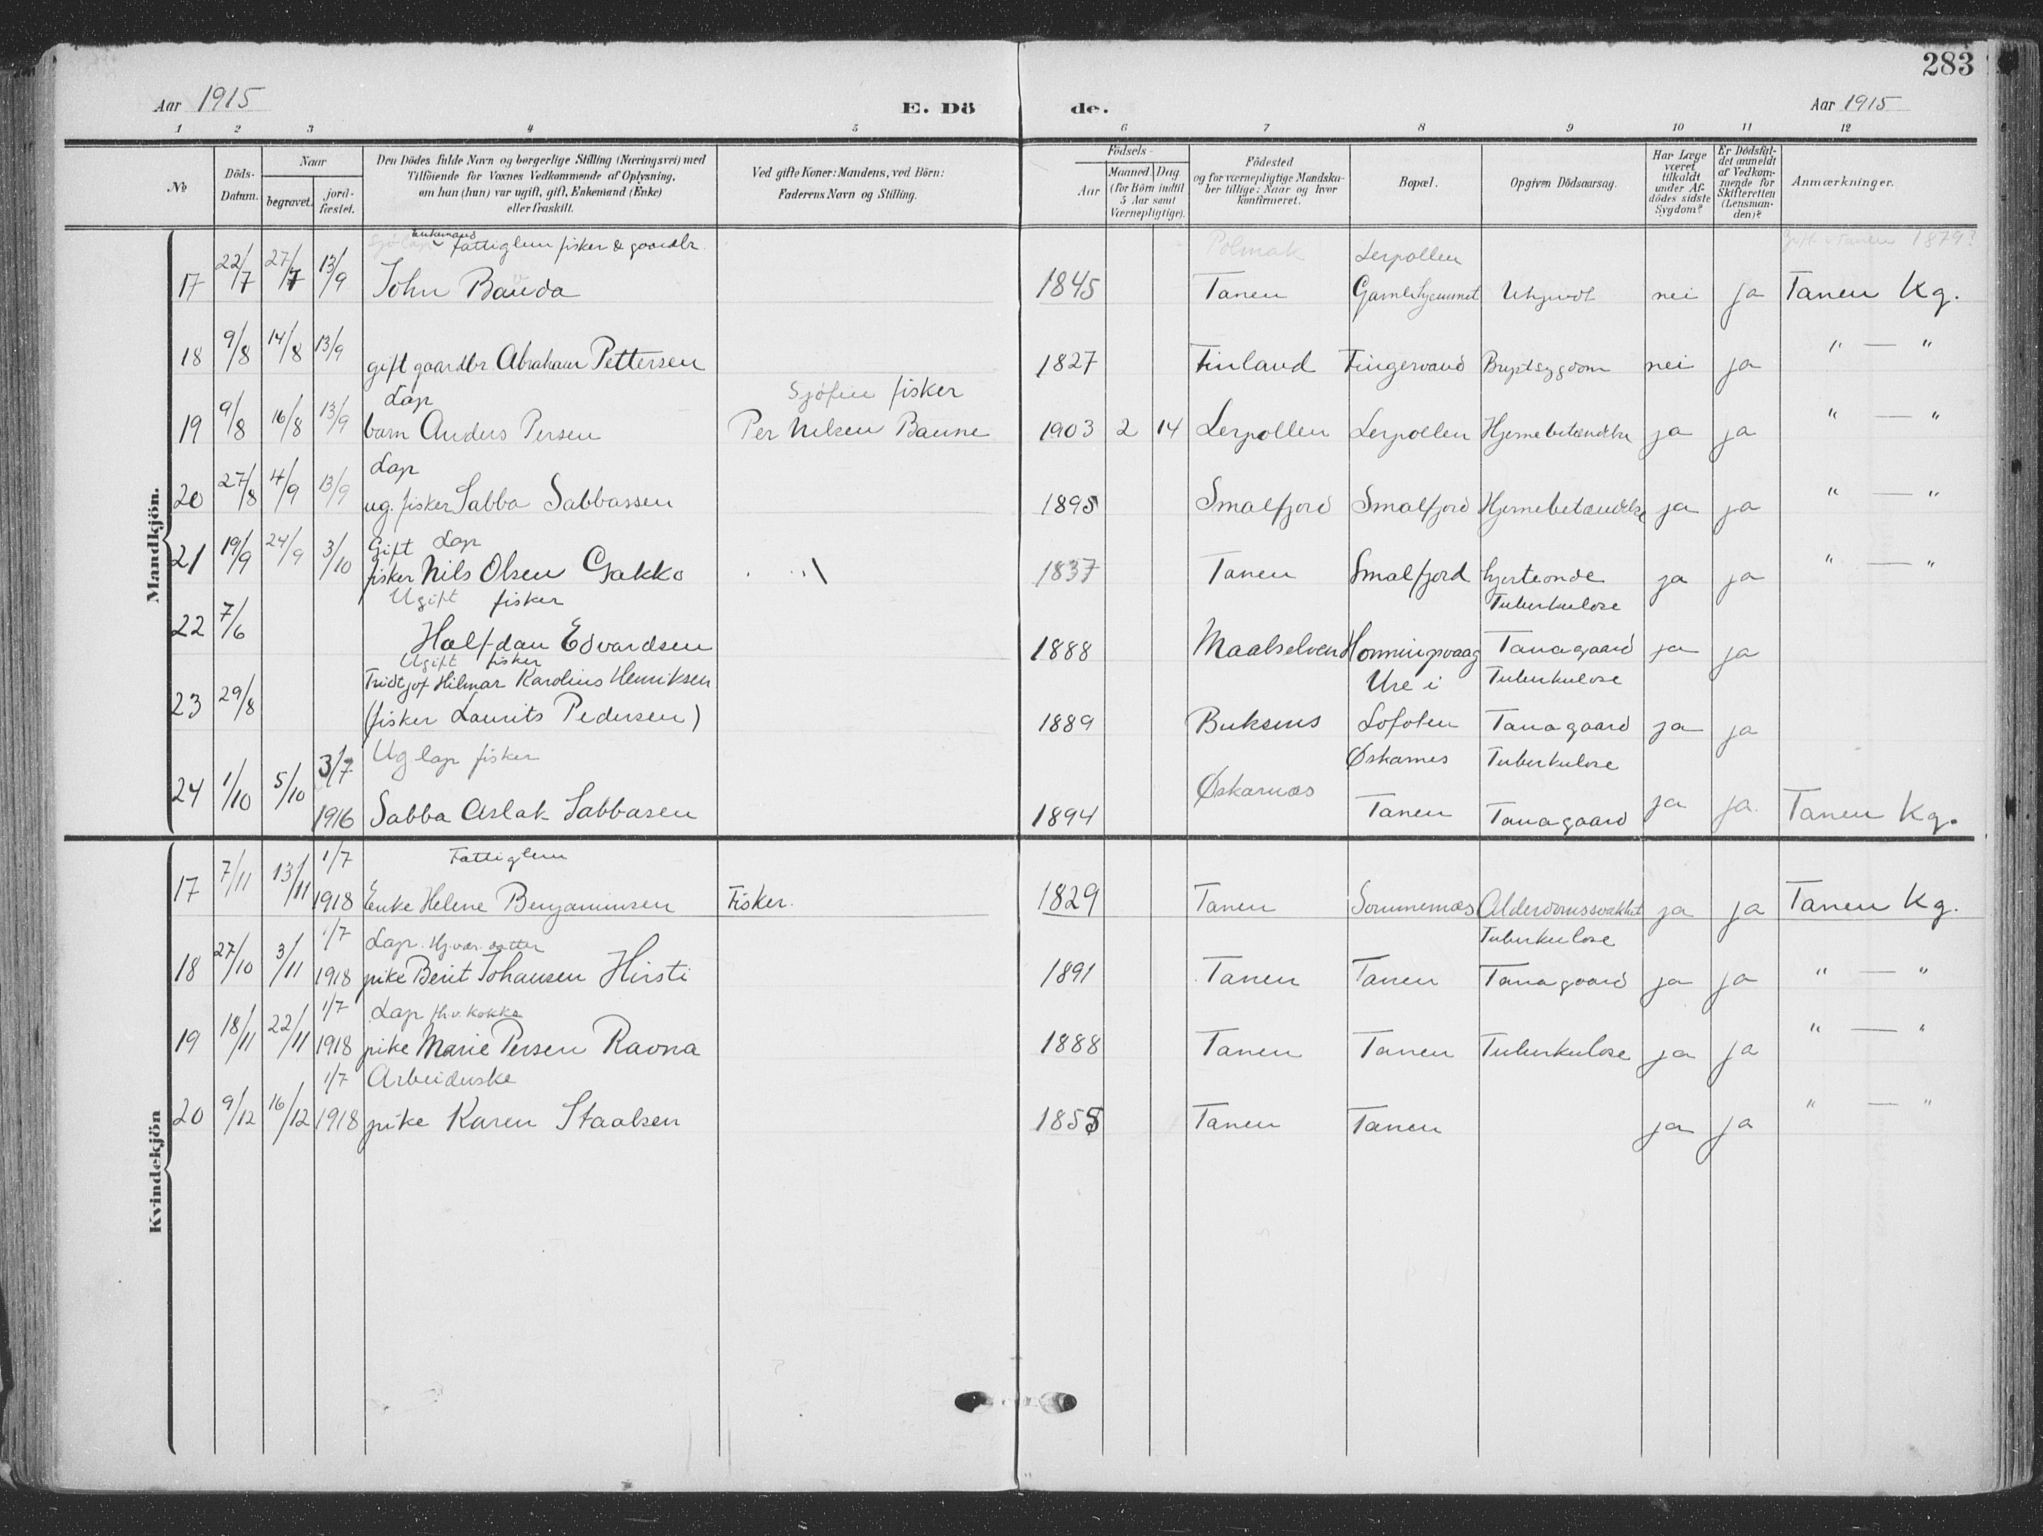 283
Aar 1915 E. Dö de. Aar 1915
1 2 3 4 5 6 7 8 9 10 11 12
No
Döds-Datum.
Naar
begravet.
jord-fæstet.
Den Dödes fulde Navn og borgerlige Stilling (Næringsvei) med
Tilföiende for Voxnes Vedkommende af Oplysning,
om han (hun) var ugift, gift, Enkemand (Enke)
eller fraskilt.
Ved gifte Koner: Mandens, ved Börn:
Faderens Navn og Stilling.
Födsels-
Aar
Maaned. Dag
(for Börn indtil
5 Aar samt
Værnepligtige).
Födested
og for værnepligtige Mandska-
ber tillige: Naar og hvor
konfirmeret.
Bopæl.
Opgiven Dödsaarsag.
Har Læge
været
tilkaldt
under Af-
dödes sidste
Sygdom?
Er Dödsfal-
det anmeldt
af Vedkom-
mende for
Skifteretten
(Lensman-
den)?
Anmærkninger.
Mandkjön.
Enkemand fattiglem fisker & gaardbr. Polmak Lerpollen Gift i Tanen 1879?
17 22/7 27/7 13/9 John Bauda 1845 Tanen Gamlehjemmet Ukjendt nei ja Tanen Kg.
18 9/8 14/8 13/9 gift gaardbr Abraham Pettersen 1827 Finland Fingervand Brystsygdom nei ja " — "
Lap Sjøfin fisker
19 9/8 16/8 13/9 barn Anders Persen Per Nilsen Banne 1903 2 14 Lerpollen Lerpollen Hjernebetændelse ja ja " — "
Lap
20 27/8 4/9 13/9 ug. fisker Sabba Sabbassen 1895 Smalfjord Smalfjord Hjernebetændelse ja ja " — "
Gift Lap
21 19/9 24/9 3/10 fisker Nils Olsen Gakko 1837 Tanen Smalfjord hjerteonde ja ja " — "
Ugift fisker Tuberkulose
22 7/6 Halfdan Edvardsen 1888 Maalselven Honningsvaag Tanagaard ja ja
Ugift fisker
Fridtjof Hilmar Karolius Henriksen Ure i Tuberkulose
23 29/8 (fisker Laurits Pedersen) 1889 Buksnes Lofoten Tanagaard ja ja
Ug lap fisker Øskarnes Tuberkulose
24 1/10 5/10 3/7 1916 Sabba Aslak Sabbasen 1894 Øskarnæs Tanen Tanagaard ja ja. Tanen Kg.
Kvindekjön
Fattiglem
17 7/11 13/11 1/7 1918 Enke Helene Benjaminsen Fisker. 1829 Tanen Sommernæs Alderdomssvakhet ja ja Tanen Kg.
Lap. Hj.vær. datter Tuberkulose
18 27/10 3/11 1/7 1918 pike Berit Johansen Hirsti 1891 Tanen Tanen Tanagaard ja ja " — "
Lap fh.v. kokke
19 18/11 22/11 1/7 1918 pike Marie Persen Ravna 1888 Tanen Tanen Tuberkulose ja ja " — "
Arbeiderske
20 9/12 16/12 1/7 1918 pike Karen Staalsen 1855 Tanen Tanen ja ja " — "